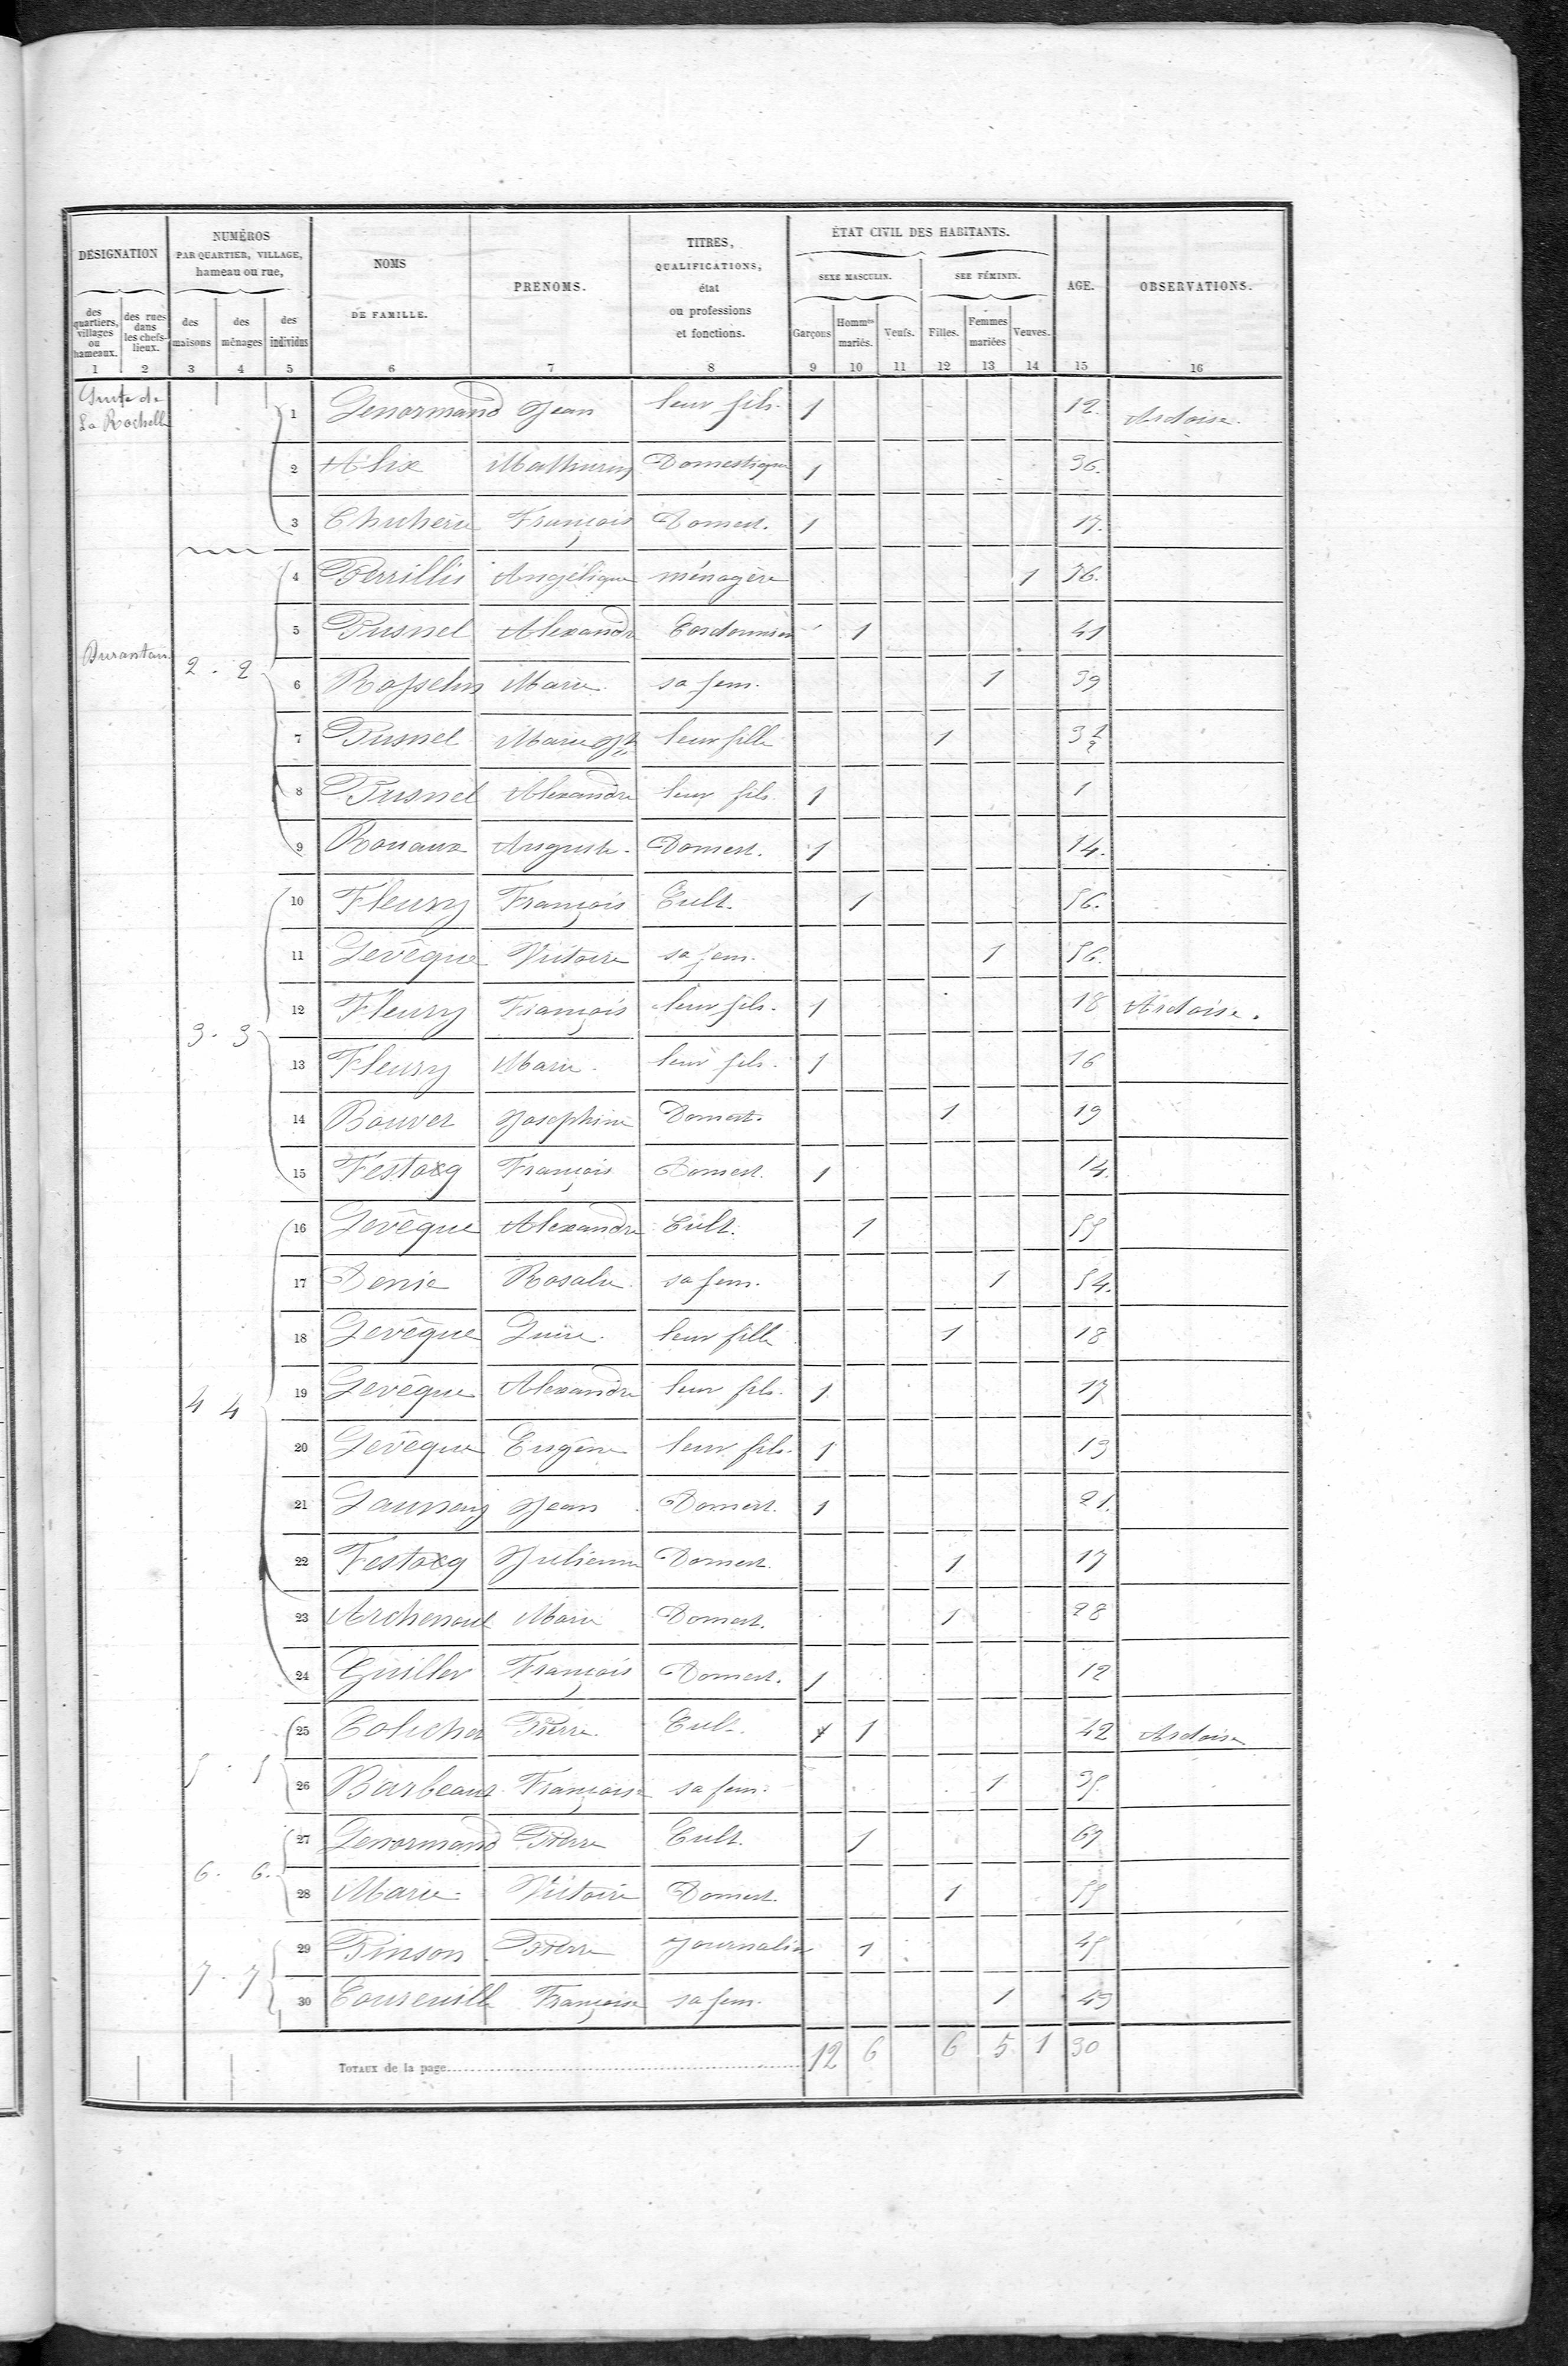 DESIGNATION | NUMÉROS PAR QUARTIER, VILLAGE, hameau ou rue, | NOMS DE FAMILLE. | PRENOMS. | TITRES, QUALIFICATIONS, état ou professions et fonctions. | ÉTAT CIVIL DES HABITANTS. | AGE. | OBSERVATIONS.
SEXE MASCULIN. | SEE FÉMININ.
des quartiers, villages ou hameaux. | des rues dans les chefs-lieux. | des maisons | des ménages | des individus | Garçons | Hommes mariés. | Veufs. | Filles. | Femmes mariées | Veuves.
1 | 2 | 3 | 4 | 5 | 6 | 7 | 8 | 9 | 10 | 11 | 12 | 13 | 14 | 15 | 16
Suite de La Rochelle | 1 | Lenormand | Jean | leur fils. | 1 | 12. | Ardoise.
2 | Alix | Mathurin | Domestique | 1 | 36.
3 | François | Domest. | 1 | 17.
4 | Angélique | ménagère | 1 | 36.
5 | Busnel | Alexandre | Cordonnier | 1 | 41
2 . 2 | 6 | Rosselin | Marie. | sa fem. | 1 | 39
7 | Busnel | Marie | leur fille | 1 | 3 ½
8 | Busnel | Alexandre | leur fils | 1 | 1
9 | Rouaux | Auguste. | Domest. | 1 | 14.
10 | Fleury | François | Cult. | 1 | 56.
11 | Levêque | Victoire | sa fem. | 1 | 56.
12 | Fleury | François | leur fils. | 1 | 18 | Ardoise.
3 . 3
13 | Fleury | Marie. | leur fils. | 1 | 16
14 | Bouvet | Josephine | Domest. | 1 | 19
15 | François | Domest. | 1 | 14.
16 | Levêque | Alexandre | Cult. | 1 | 55
17 | Denis | Rosalie. | sa fem. | 1 | 54.
18 | Levêque | leur fille | 1 | 18
4 4 | 19 | Levêque | Alexandre | leur fils. | 1 | 17
20 | Levêque | Eugène | leur fils. | 1 | 13
21 | Launay | Jean | Domest. | 1 | 21.
22 | Julienne | Domest. | 1 | 17
23 | Archenoul | Marie | Domest. | 1 | 28
24 | François | Domest. | 1 | 12
25 | Pierre. | Cult. | 1 | 42 | Ardoise
5 . 5
26 | Françoise | sa fem. | 1 | 35.
27 | Lenormand | Pierre | Cult. | 1 | 67
6 . 6.
28 | Marie. | Victoire | Domest. | 1 | 55
29 | Pinson | Pierre | Journalier | 1 | 45
7 . 7
30 | Françoise | sa fem. | 1 | 43
TOTAUX de la page | 12 | 6 | 6 | 5 | 1 | 30